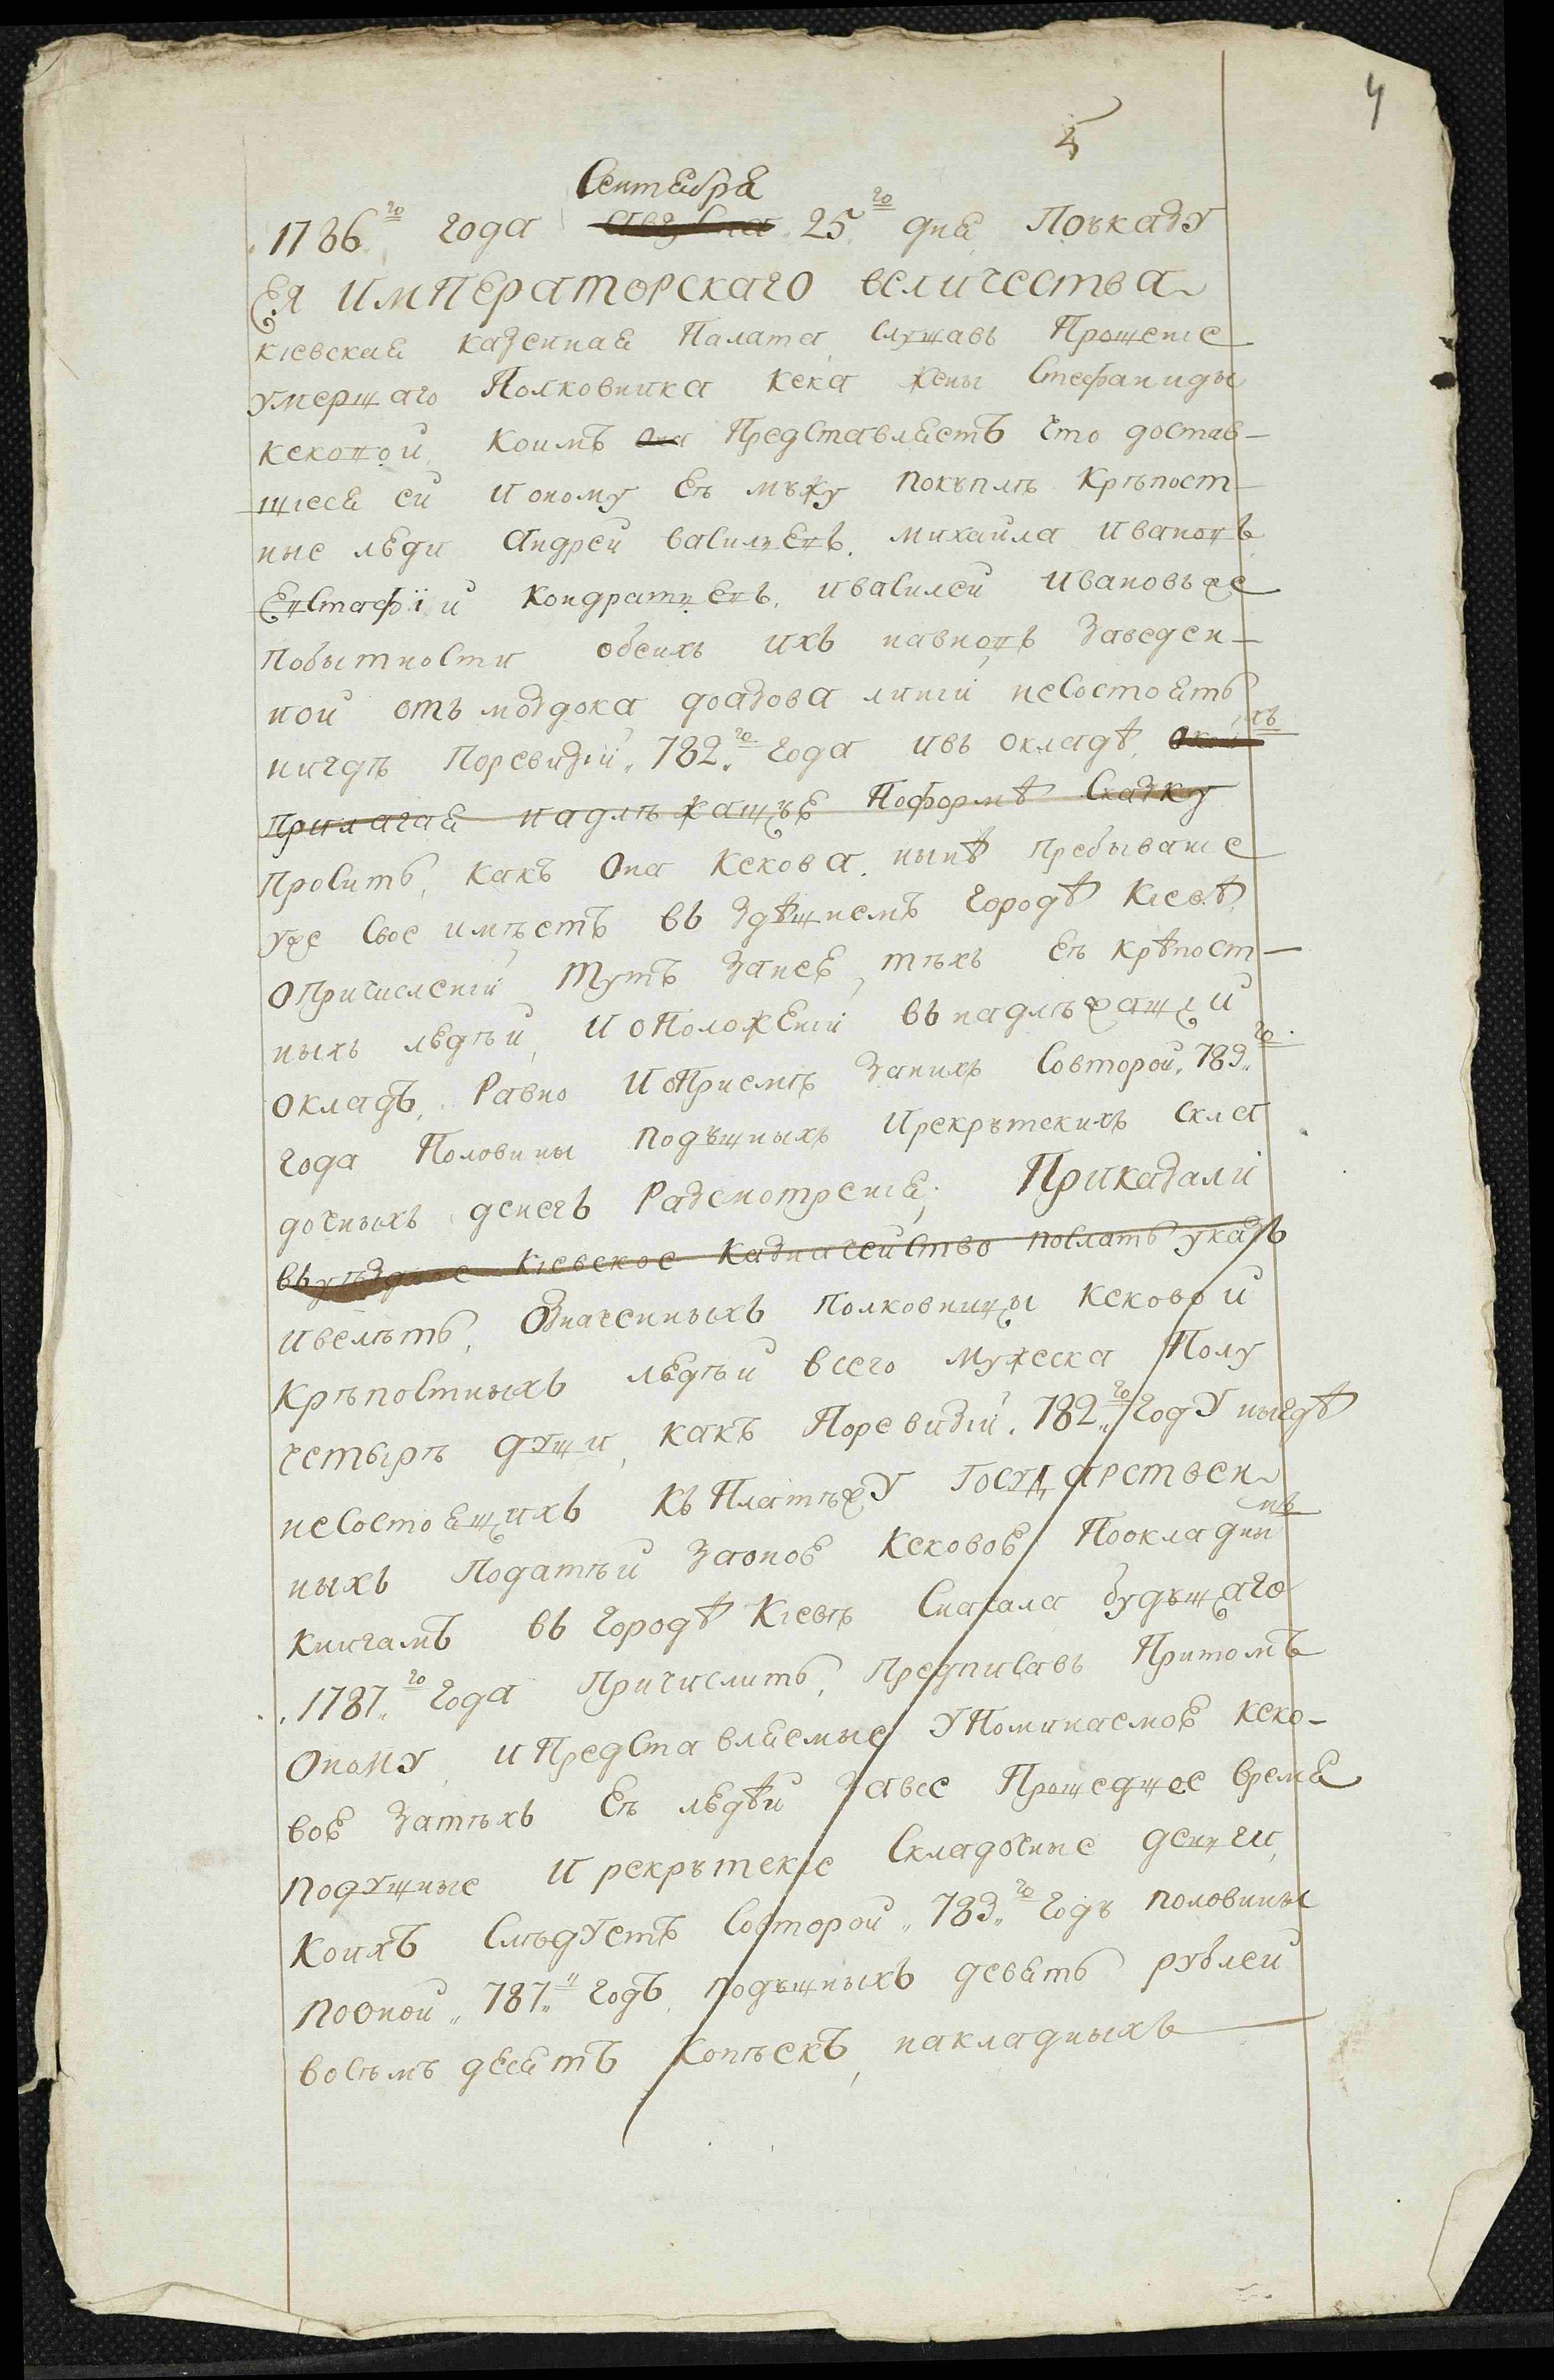 4
5
Сентября
1786.го года августа 25.го дня По указу
Ея Императорскаго величества
киевская казенная Палата, слушавъ Прошение
умершаго Полковника Кека жены Стефаниды
кековой, коимъ она Представляетъ что достав-
шиеся ей и оному ея мужу покупле крепост-
ные люди Андрей васильевъ, михайла ивановъ,
Евстафїй кондратьевъ, и василей ивановъ же
по бытности обеихъ ихъ на вновь заведен-
ной отъ моздока до азова линїи, не состоятъ
нигде По ревизїи 782.го года и въ окладѣ,
прилагая надлежащую По форме сказку
просить, какъ Она Кекова ныне пребывание
уже свое имеетъ въ здешнемъ городѣ Киевѣ,
о причислении тутъ за нею, техъ ея крепост-
ныхъ людей, и о Положении въ надлежащий
окладъ, Равно и о Приеме за нихъ со второй 783.го
года Половины подушныхъ и рекрутскихъ скла
дочныхъ денегъ разсмотрения; Приказали
въ уездное киевское казначейство послать указъ
и велеть, Означенныхъ полковницы кековой
крепостныхъ людей всего мужеска Полу
четыре души, какъ По ревизїи 782.го году нигдѣ
не состоящихъ къ Платежу государствен-
ныхъ Податей за оною Кековою По окладны
мъ
книгамъ въ городѣ Киеве сначала будущаго
1787.го года причислить, предписавъ Притомъ
Оному и Представляемые упоминаемою кеко-
вою за техъ ея людей за все Прошедшее время
подушные и рекрутские складочные деньги,
коихъ следуетъ со второй 783.го годъ половины
по оной 787.й годъ подушныхъ девять рублей
восемъ десятъ копеекъ, накладныхъ